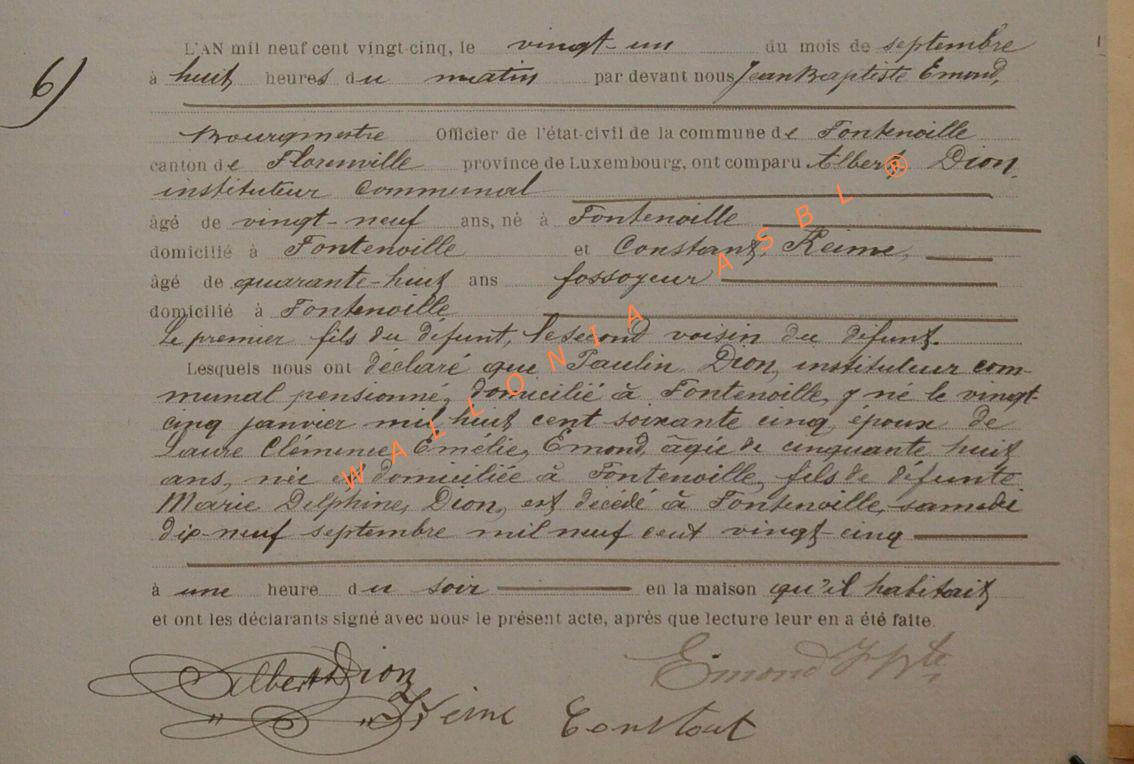 6)
L'AN mil neuf cent vingt-cinq, le vingt-un du mois de septembre
à huit heures du matin par devant nous Jean Baptiste Emond,
Bourgmestre Officier de l'état-civil de la commune de Fontenoille
canton de Florenville province de Luxembourg, ont comparu Albert Dion,
instituteur communal
âgé de vingt-neuf ans, né à Fontenoille
domicilié à Fontenoille et Constant Reime,
âgé de quarante-huit ans fossoyeur
domicilié à Fontenoille
Le premier fils du défunt, le second voisin du défunt.
Lesquels nous ont déclaré que Paulin Dion, instituteur com-
munal pensionné, domicilié à Fontenoille, y né le vingt-
cinq janvier mil huit cent soixante cinq, époux de
Laure Clémence Emélie Emond, âgée de cinquante huit
ans, née et domiciliée à Fontenoille, fils de défunte
Marie Delphine Dion, est décédé à Fontenoille, samedi
dix-neuf septembre mil neuf cent vingt-cinq
à une heure du soir en la maison qu'il habitait
et ont les déclarants signé avec nous le présent acte, après que lecture leur en a été faite.
Albert Dion Emond J Bte
Reime Constant
WALLONIA ASBL ®